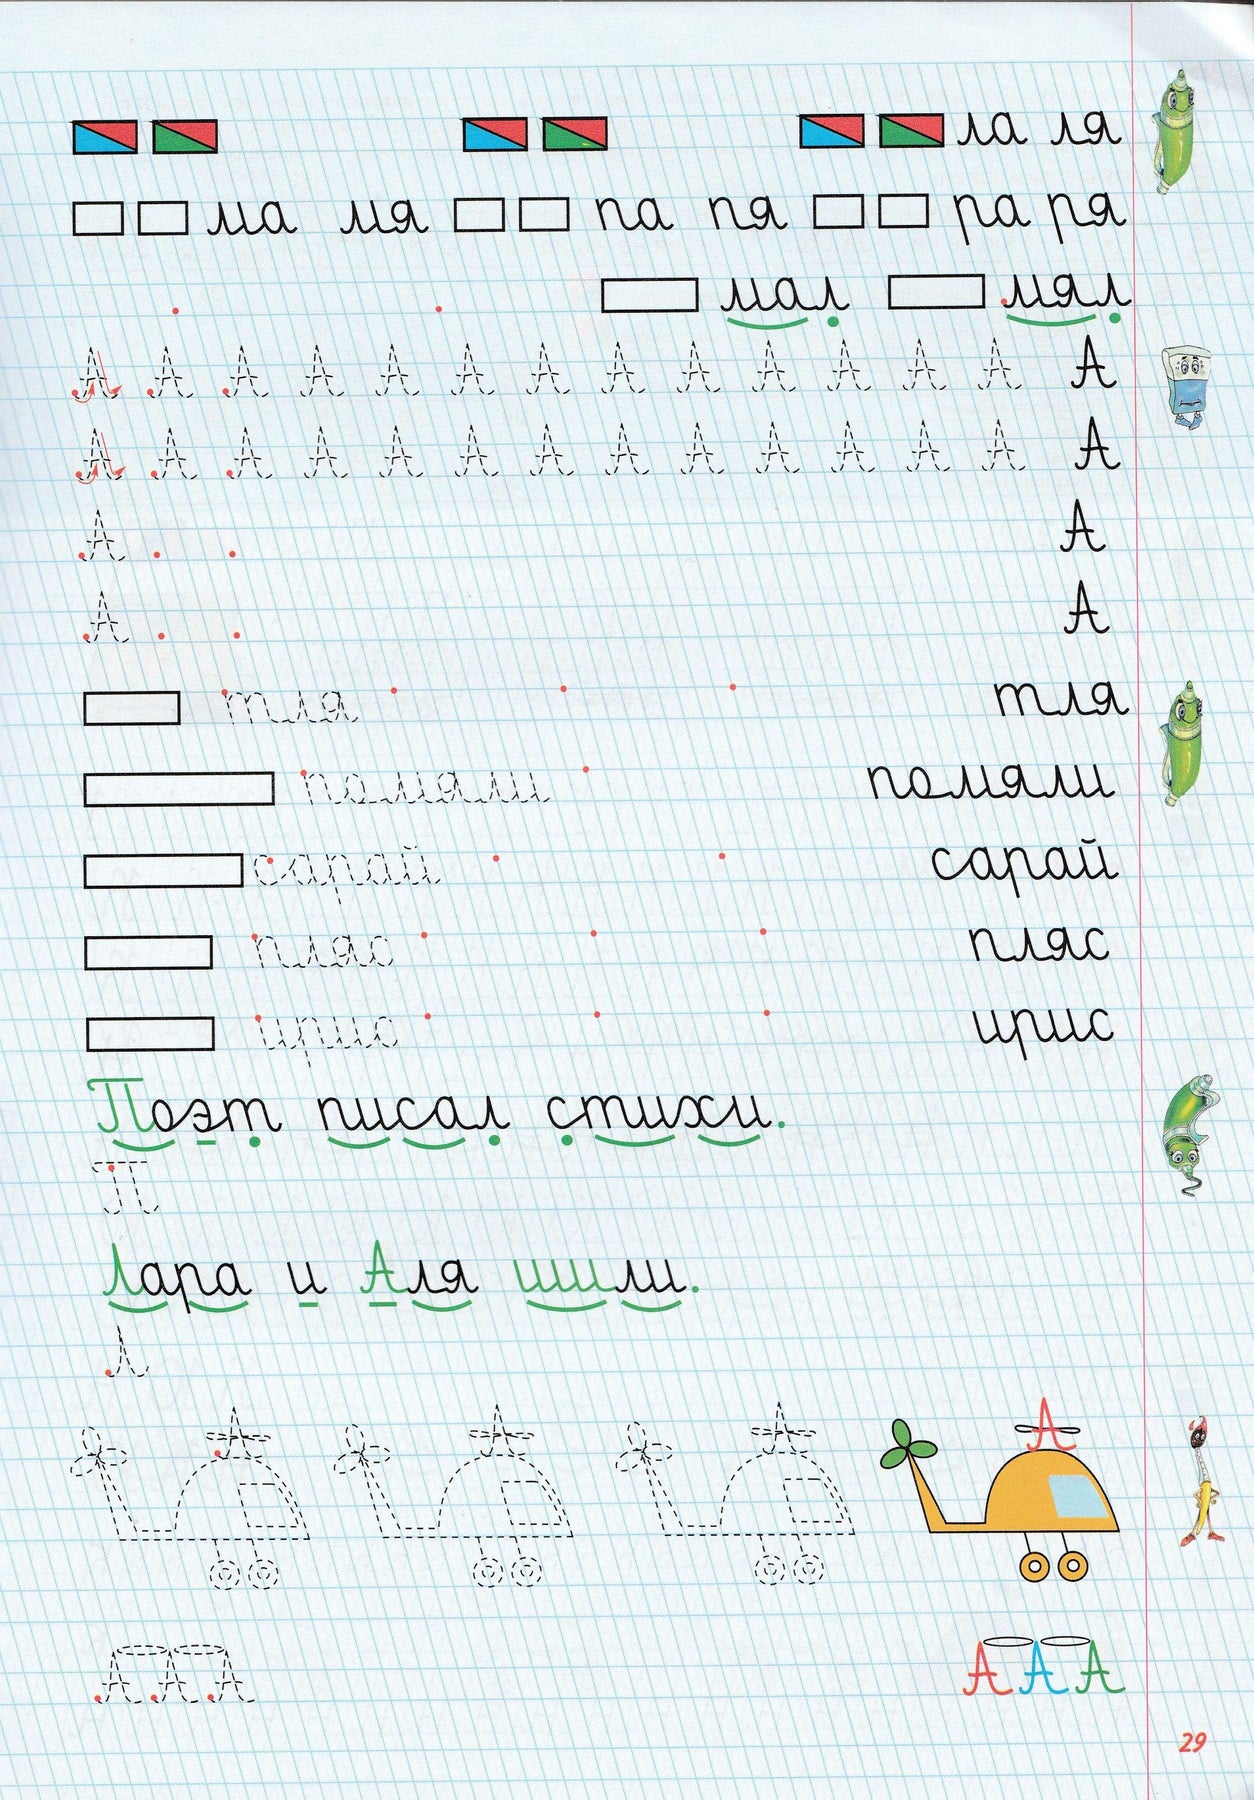 ла ля
ма мя па пя ра ря
мал мял
А А А А А А А А А А А А А А
А А А А А А А А А А А А А А
А А
А А
тля тля
помяли помяли
сарай сарай
пляс пляс
ирис ирис
Поэт писал стихи.
П
Лара и Аля шили.
Л
А А А А
А А А А А А
29